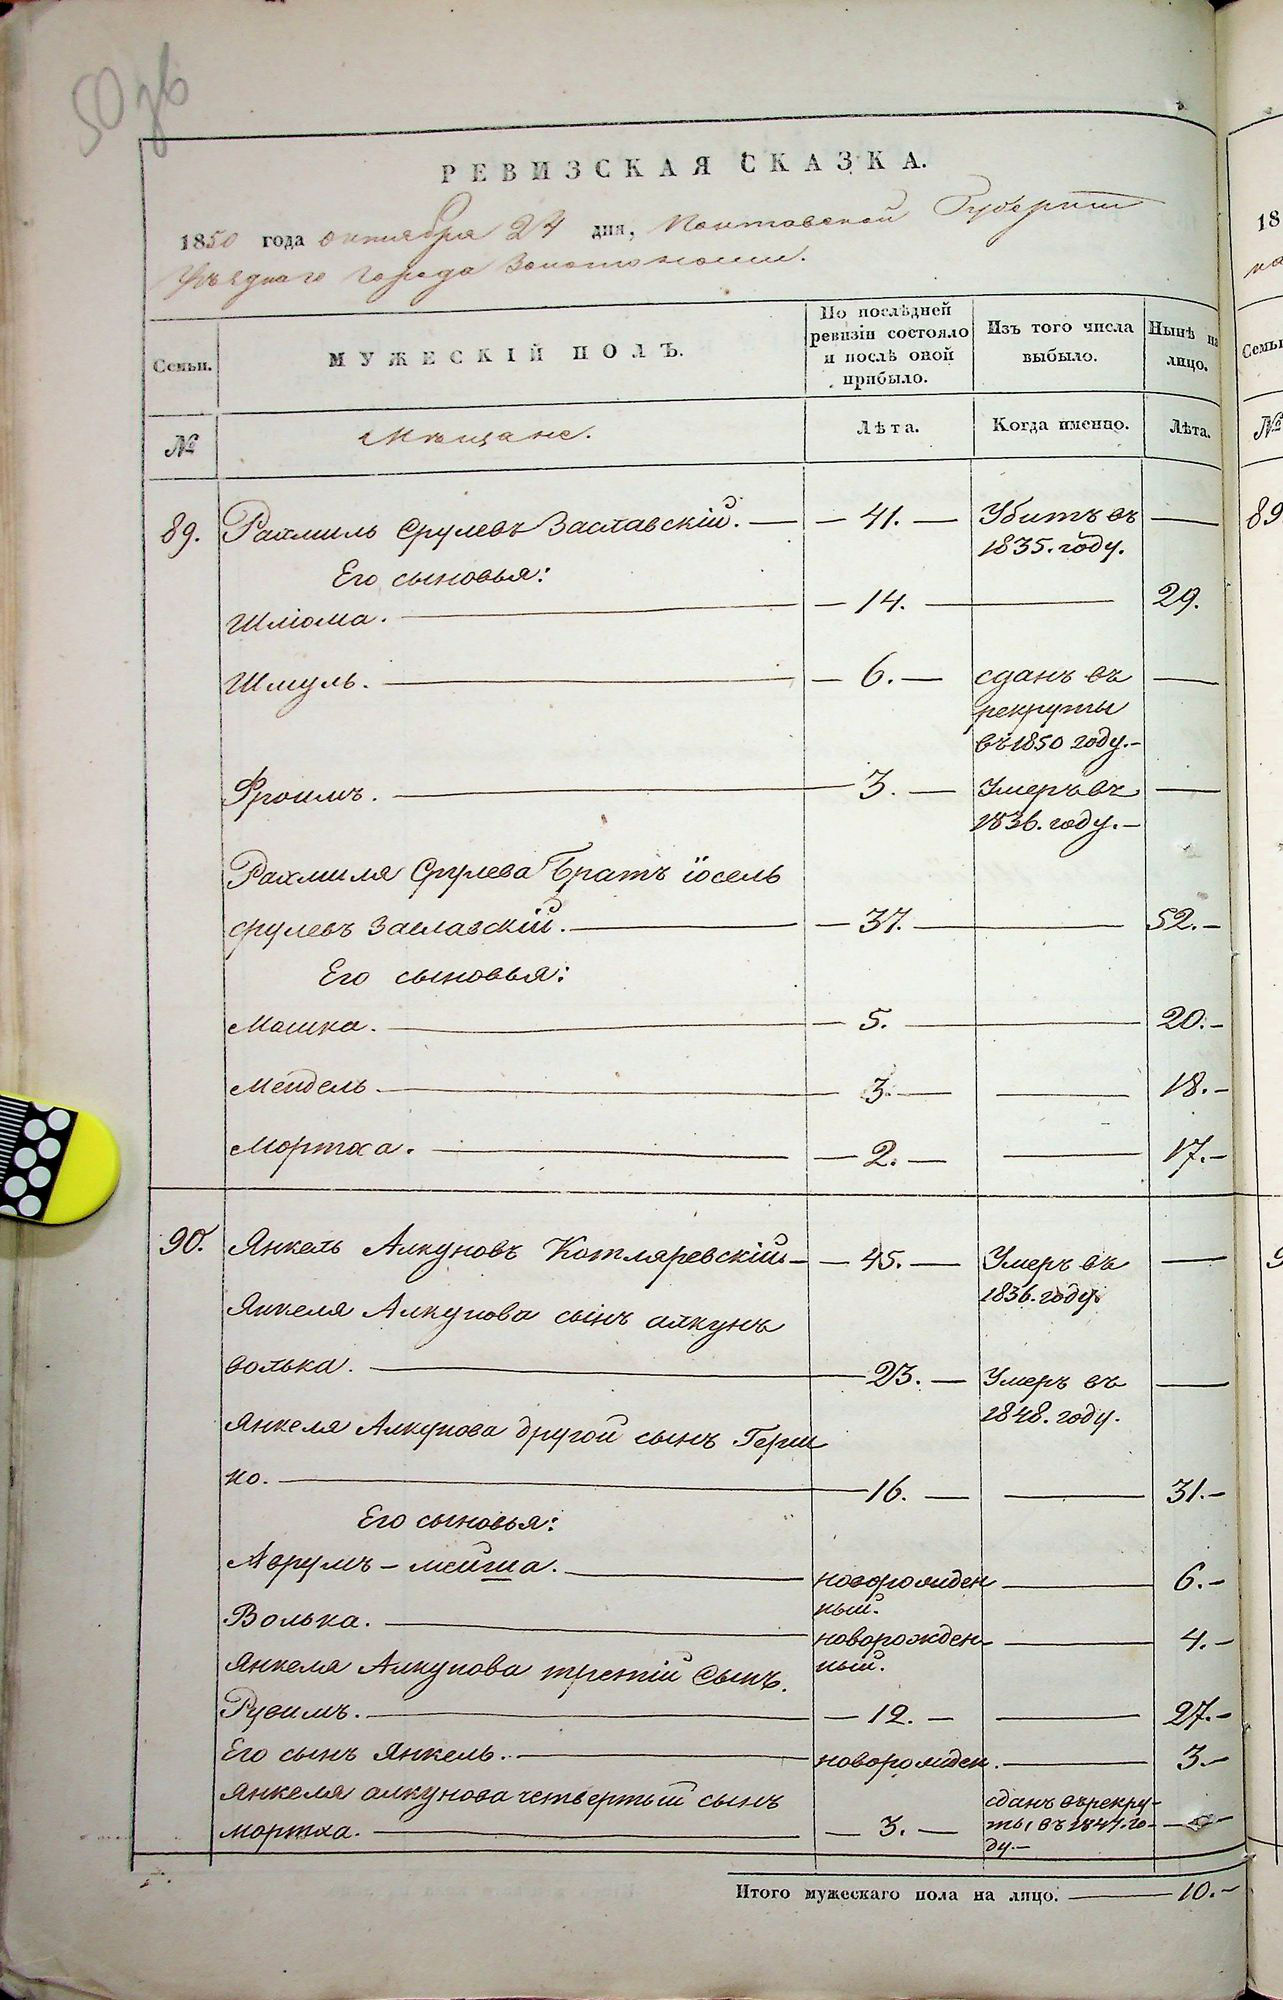 50 зв
РЕВИЗСКАЯ СКАЗКА.
1850 года октября 24 дня, Полтавской Губернии
Уѣзднаго города Золотоноши.
Семьи.
МУЖЕСКІЙ ПОЛЪ.
По послѣдней
ревизіи состояло
и послѣ оной
прибыло.
Изъ того числа
выбыло.
Нынѣ на
лицо.
№
Мѣщане.
Лѣта.
Когда именно.
Лѣта.
89. Рахмиль Срулевъ Заславскій. — 41. — Убитъ въ —
1835. году.
Его сыновья:
Шліома. — 14. — 29.
Шмуль. — 6. — сданъ въ —
рекруты
въ 1850 году. —
Фроимъ. — 3. — Умеръ въ —
1836. году. —
Рахмиля Срулева Братъ іосель
срулевъ Заславскій. — 37. — 52. —
Его сыновья:
Мошка. — 5. — 20. —
Мендель — 3. — 18. —
Мортха. — 2. — 17. —
90. Янкель Алкуновъ Котляревскій — 45. — Умеръ въ —
1836. году.
Янкеля Алкунова сынъ алкунъ
волька. — 23. — Умеръ въ —
1848. году.
Янкеля Алкунова другой сынъ Герш
ко. — 16. — 31. —
Его сыновья:
Аврумъ – мейша. — новорожден — 6. —
ный.
Волька. — новорожден — 4. —
ный.
Янкеля Алкунова третій Сынъ.
Рувимъ. — 12. — 27. —
Его сынъ Янкель. — новорожден. — 3. —
Янкеля алкунова четвертый сынъ
мортха. — 3. — сданъ въ рекру-
ты, въ 1847. го- —
ду. —
Итого мужескаго пола на лицо. — 10. —
18
Семьи
№
89